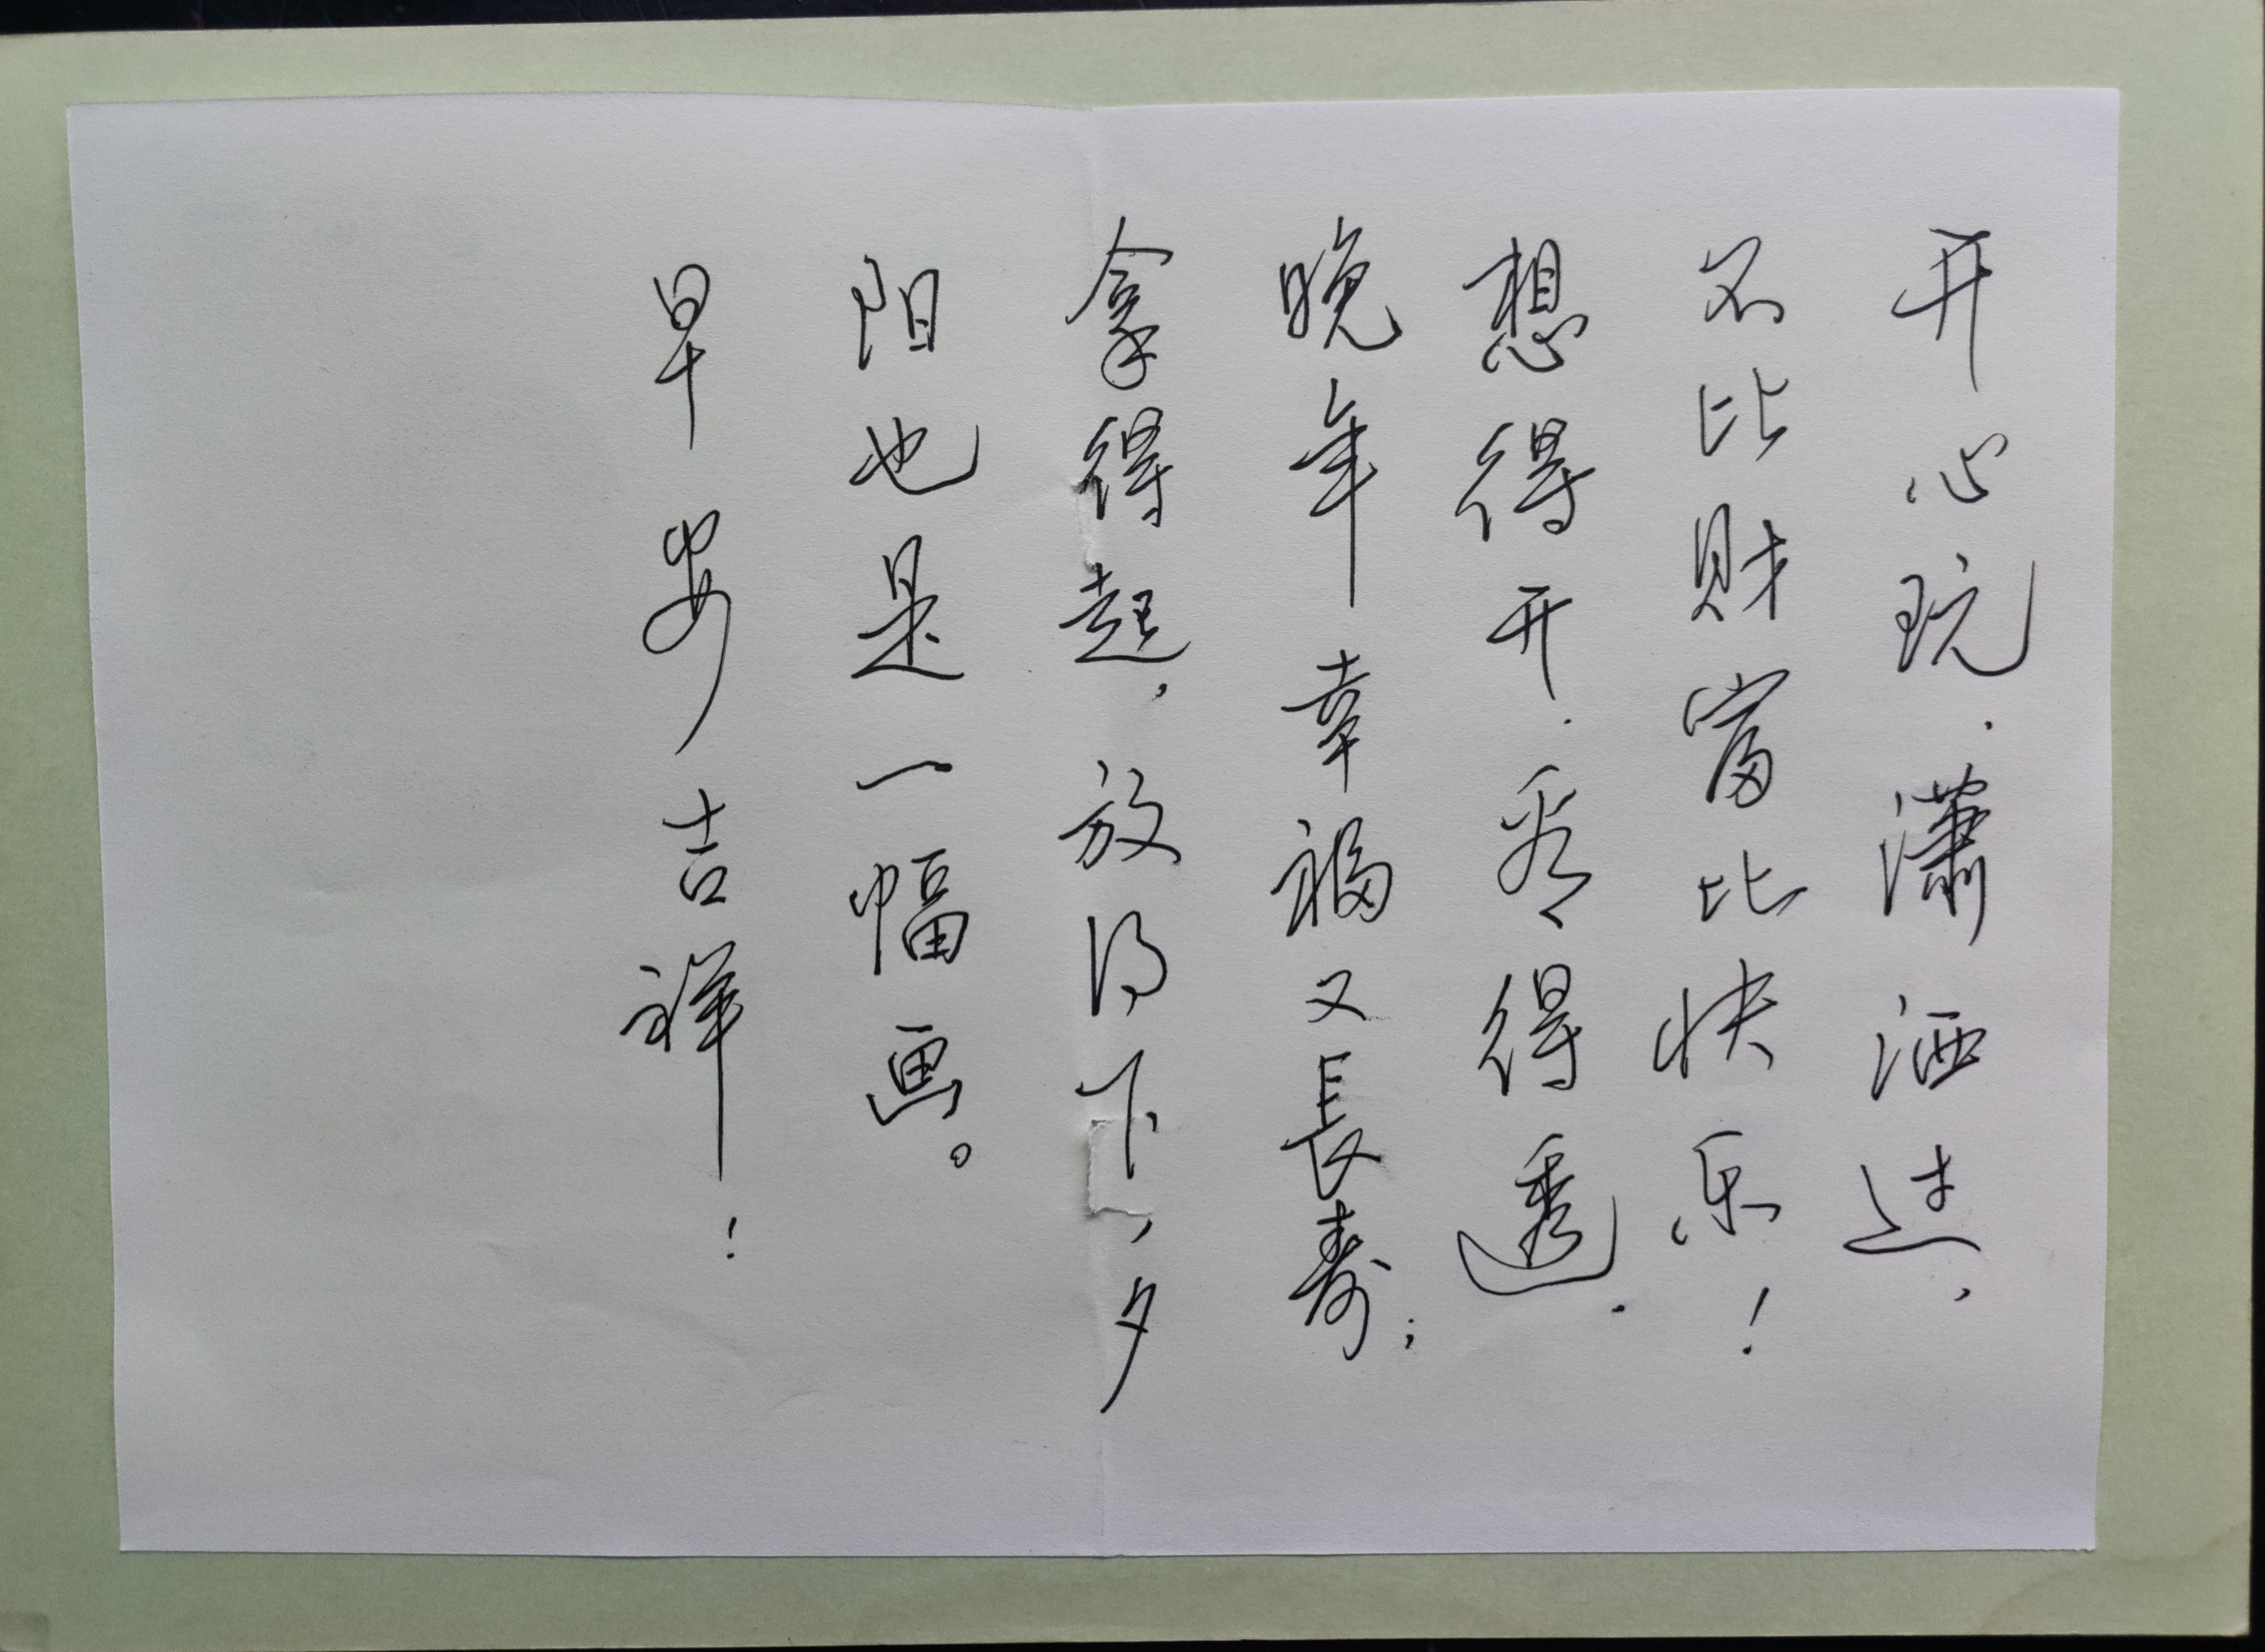 开心玩.潇洒过,
不比财富比快乐!
想得开.看得透.
晚年幸福又長寿;
拿得起,放得下,夕
阳也是一幅画。
早安吉祥!